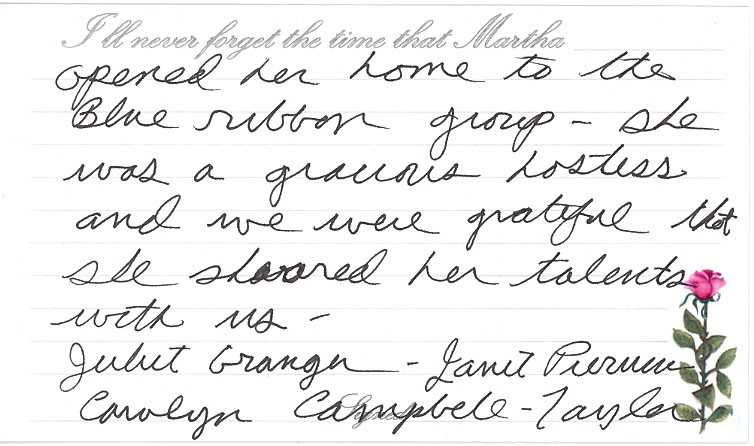 I'll never forget the time that Martha
opened her home to the
Blue ribbon group - she
was a gracious hostess
and we were grateful that
she shared her talents
with us -
Juliet Granger - Janet
Carolyn Campbell - Taylor